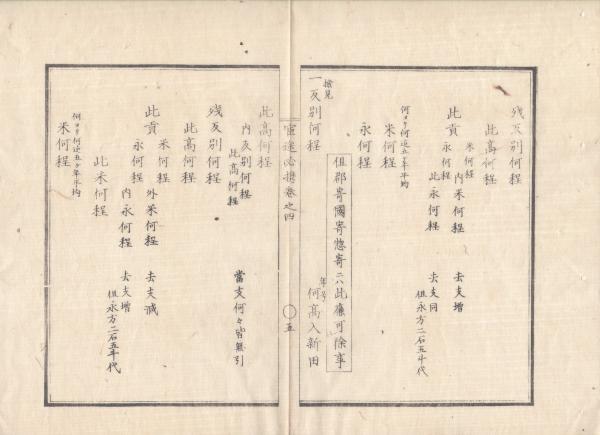 残反別何程
此高何程
米何程
内米何程 去支増
此貢
永何程
此永何程 去支同
但永方二石五斗代
何ヨリ何迄五ケ年平均
米何程
永何程
但郡寄國寄惣寄ニハ此廉可除事
検見
一反別何程
年号
何高入新田
五
此高何程
内反別何程 當支何々皆無引
此高何程
残反別何程
此高何程
米何程 外米何程 去支減
此貢
永何程 内永何程 去支増
但永方二石五斗代
此米何程
何ヨリ何迄五ケ年平均
米何程